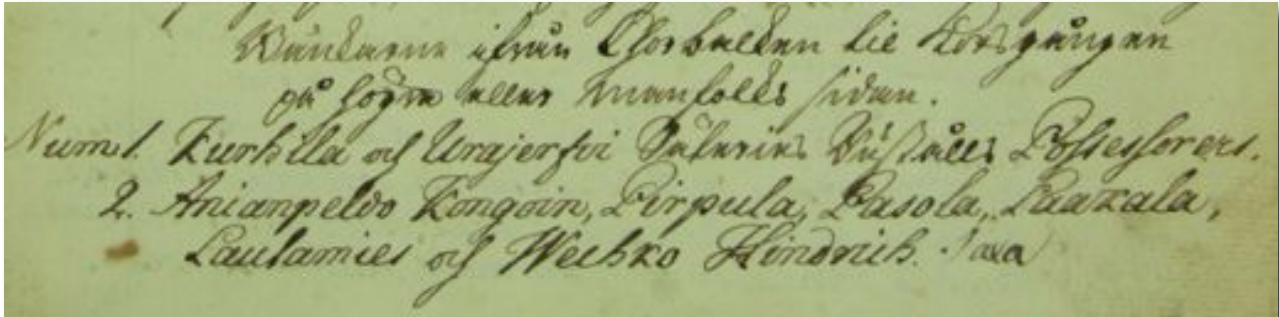 Bänckarne ifrån Chorbalcken til Korsgången
på högre eller manfolks sidan.
Num 1. Kurkila och Urajerfvi Säteries Hushålls Possessorer.
2. Anianpeldo Kongoin, Pirpula, Pasola, Paakala,
Laulamies och Wechko Hindrich.